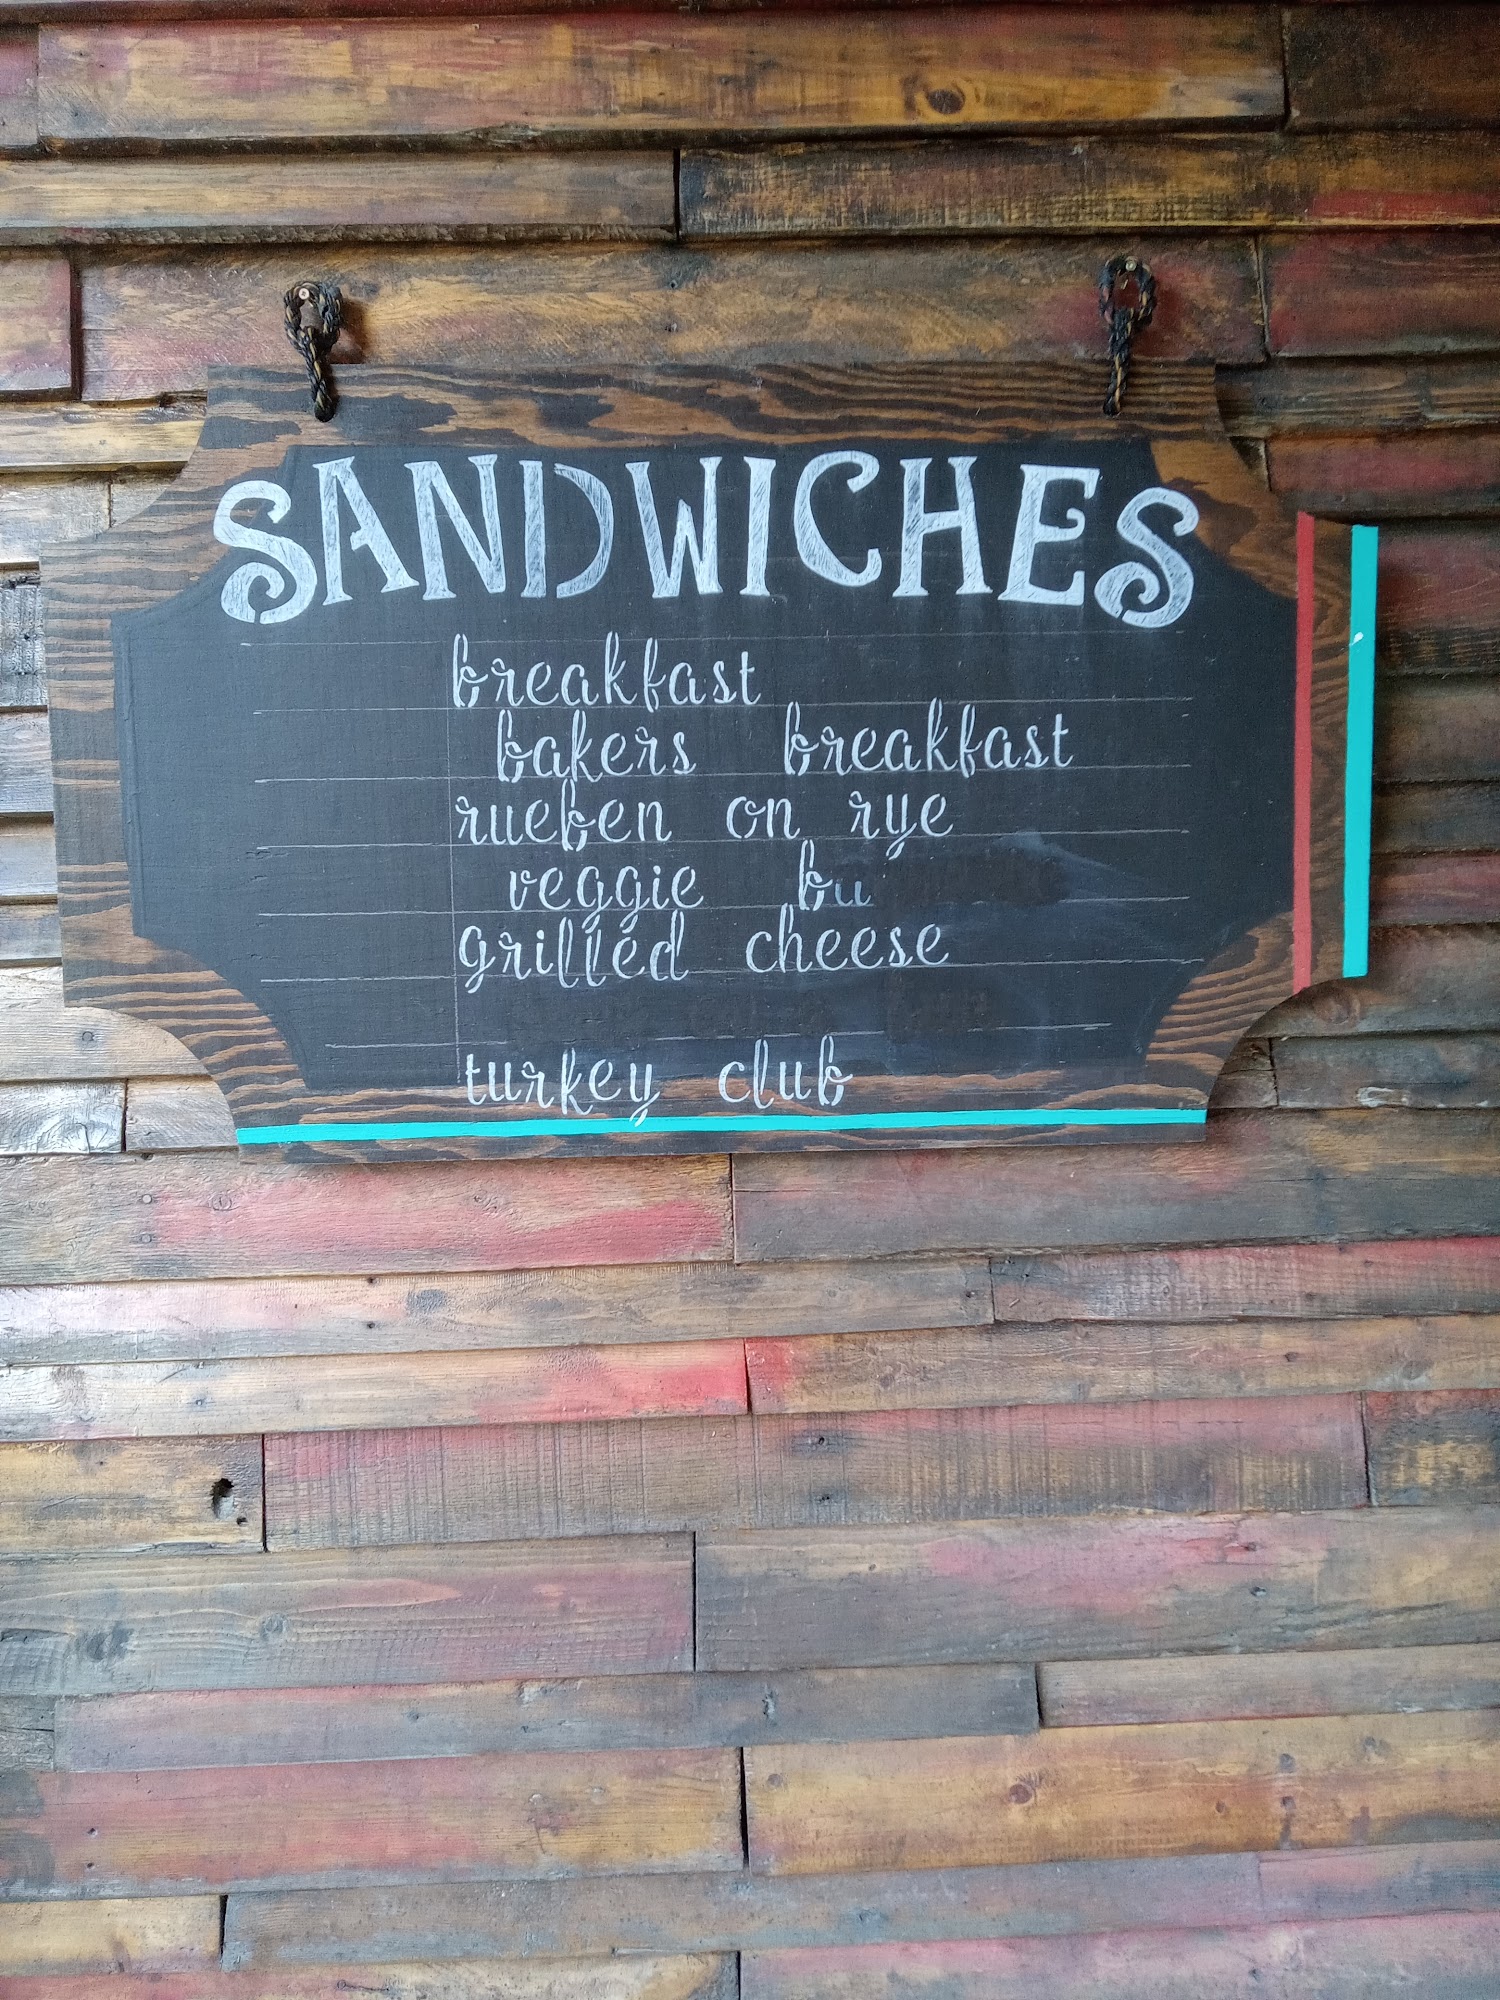 SANDWICHES
breakfast
bakers breakfast
rueben on rye
veggie bu
grilled cheese
turkey club